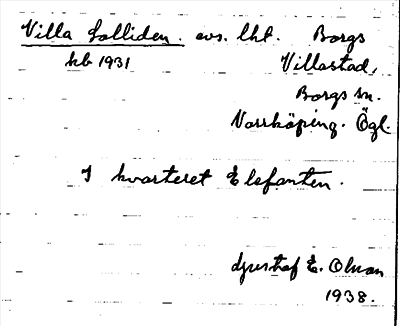 Villa Solliden. avs. lht. Borgs
kb 1931 Villastad,
Borgs sn.
Norrköping. Ögl.
I kvarteret Elefanten.
Gustaf E. Olson
1938.